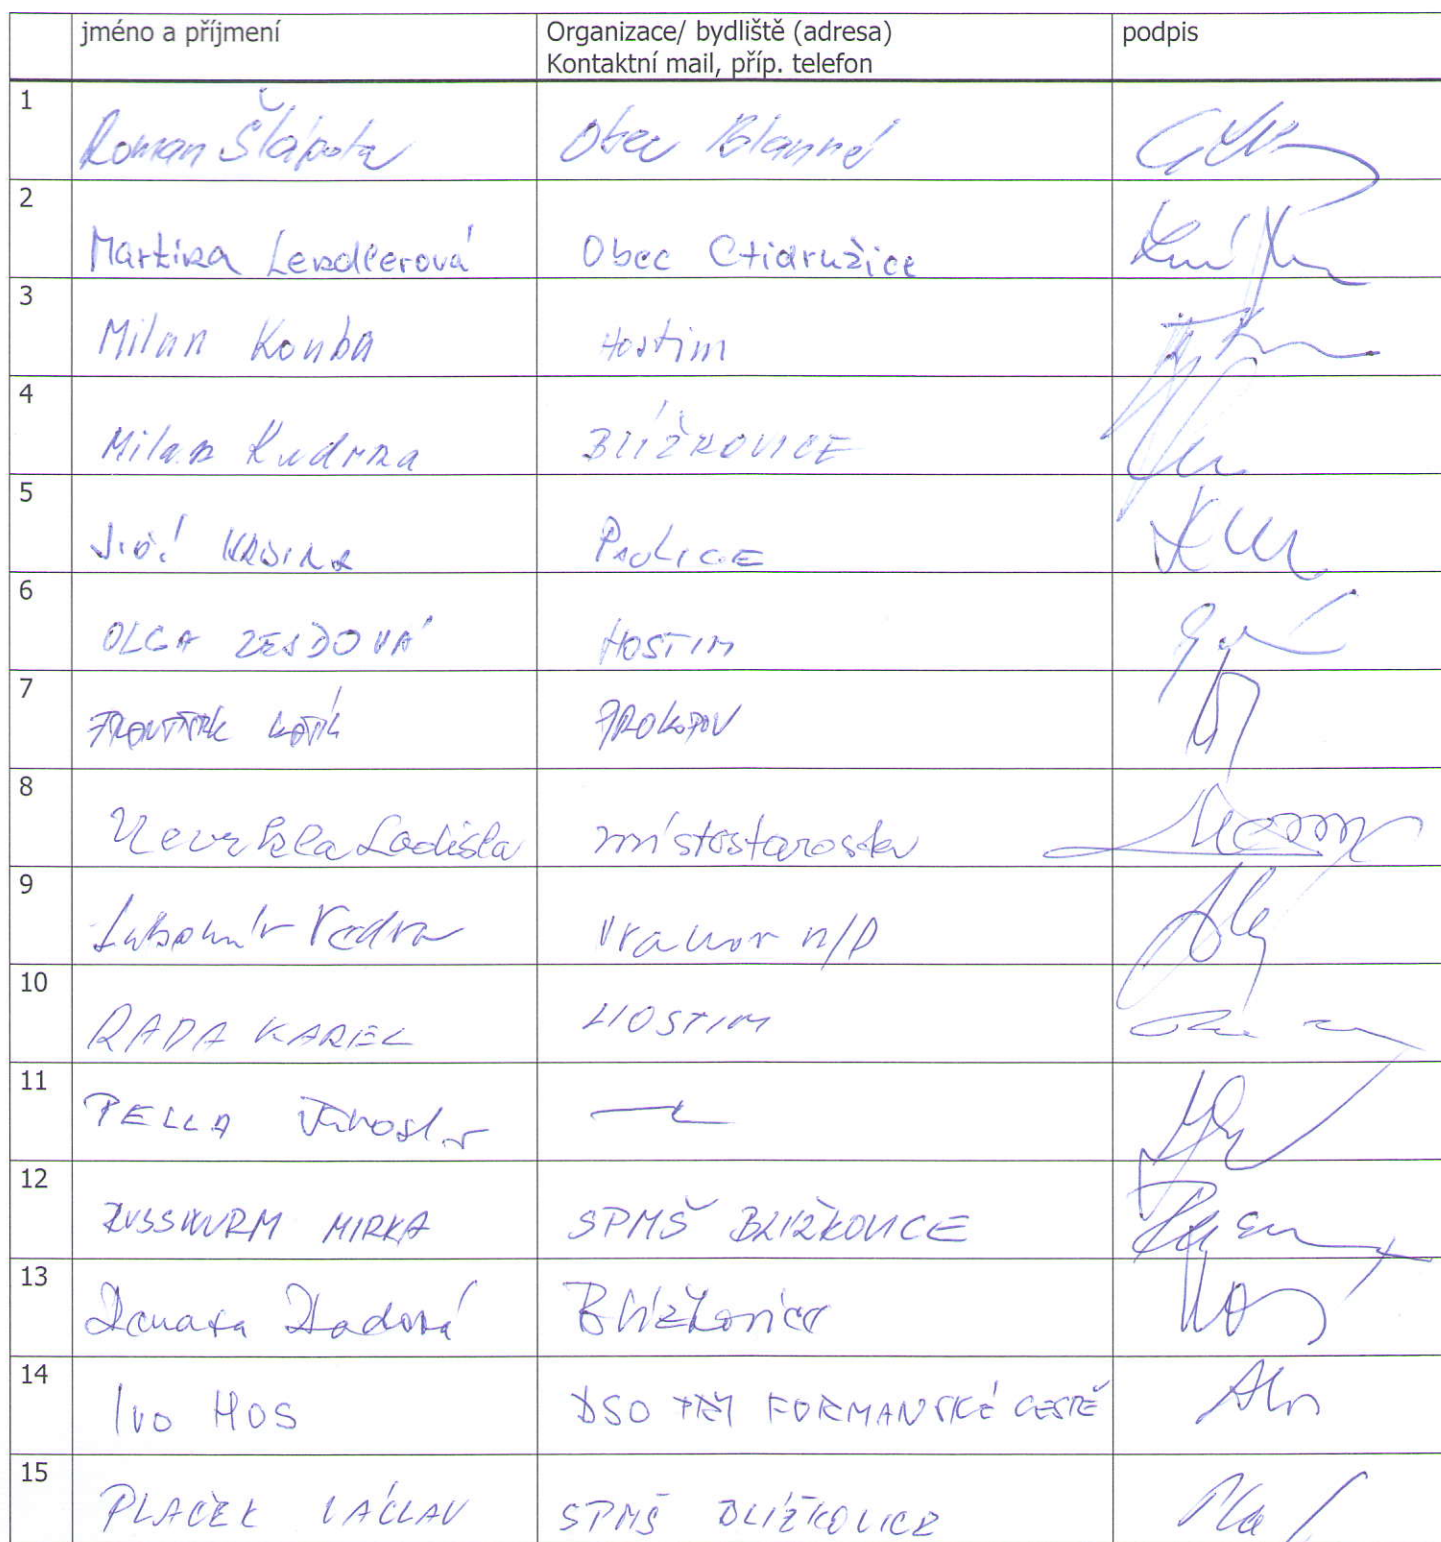 jméno a příjmení Organizace/ bydliště (adresa) podpis
Kontaktní mail, příp. telefon
1 Roman Šlápota Obec Blanné
2 Martina Lendlerová Obec Ctidružice
3 Milan Konba Hostim
4 Milan Kudrna BLÍŽKOVICE
5 Jiří POLICE
6 OLGA ZEJDOVÁ HOSTIM
7 FRANTIŠEK KOTÍK PROKOPOV
8 Nevrkla Ladisla místostarosta
9 Lubomír Vedra Vranov n/D
10 RADA KAREL HOSTIM
11 PELLA Jaroslav
12 MIRKA SPMŠ BLÍŽKOVICE
13 Renata Blížkovice
14 Ivo HOS DSO PŘI FORMANSKÉ CESTĚ
15 PLAČEK VÁCLAV SPMŠ BLÍŽKOVICE